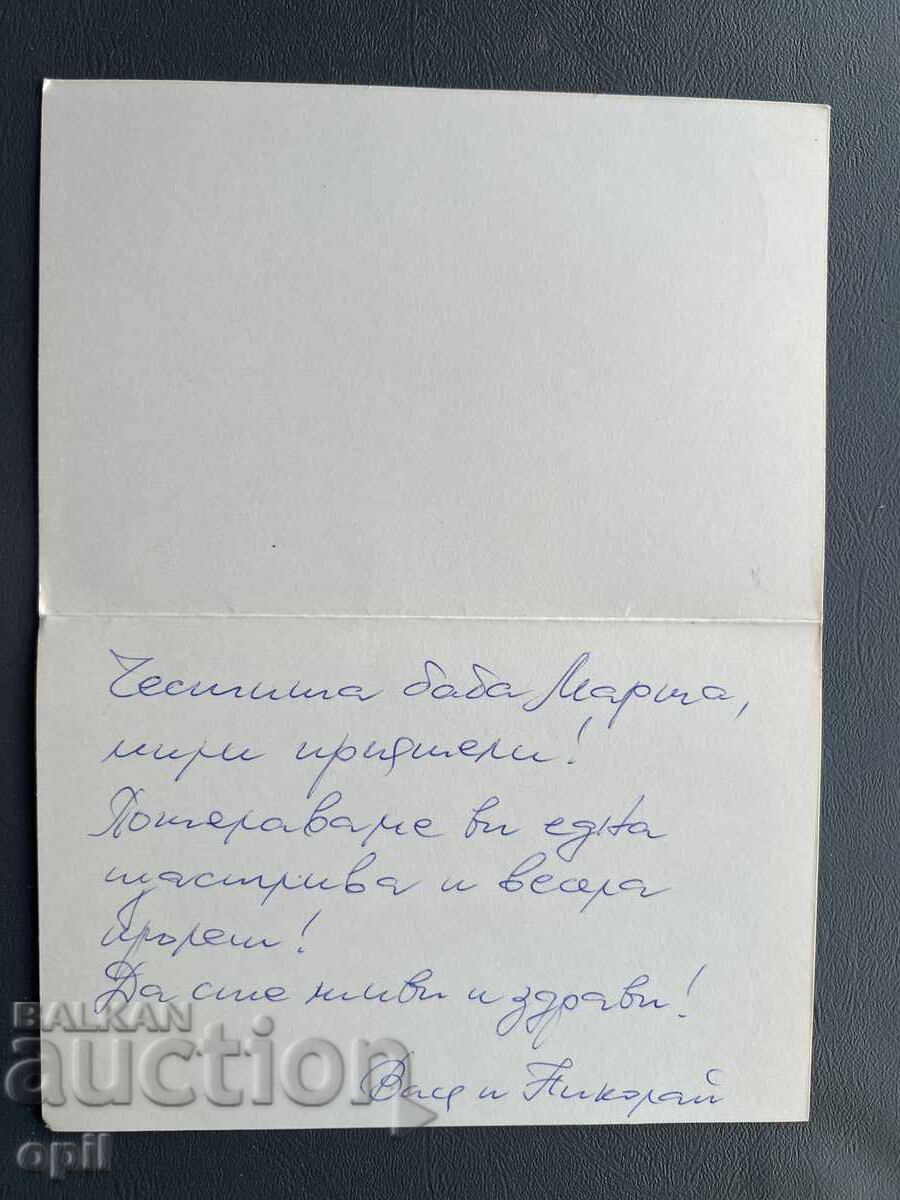 Честита баба Марта,
мили приятели!
Пожелаваме ви една
щастлива и весела
пролет!
Да сте живи и здрави!
Валя и Николай
BALKAN
auction
opil